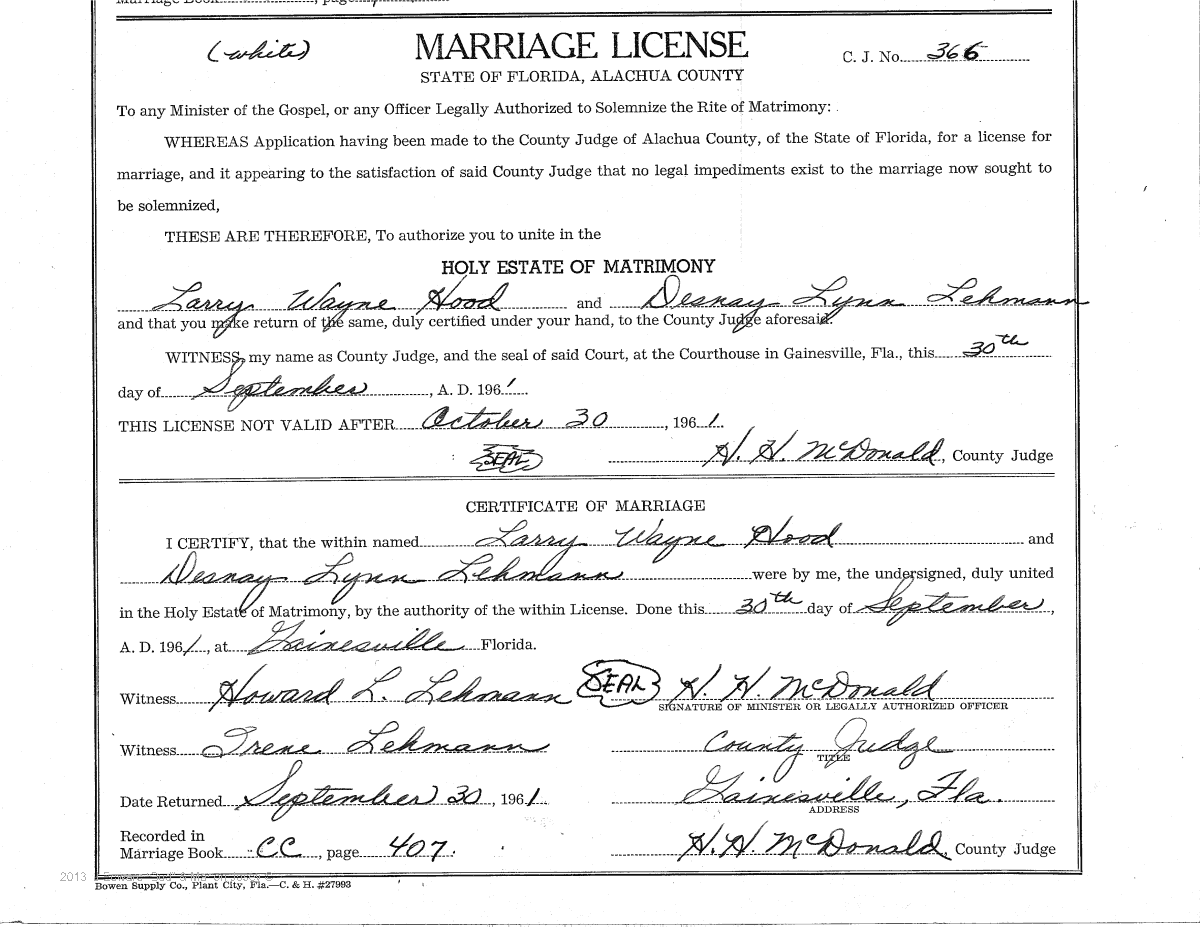 (white)
MARRIAGE LICENSE
C. J. No. 366
STATE OF FLORIDA, ALACHUA COUNTY
To any Minister of the Gospel, or any Officer Legally Authorized to Solemnize the Rite of Matrimony:
WHEREAS Application having been made to the County Judge of Alachua County, of the State of Florida, for a license for
marriage, and it appearing to the satisfaction of said County Judge that no legal impediments exist to the marriage now sought to
be solemnized,
THESE ARE THEREFORE, To authorize you to unite in the
HOLY ESTATE OF MATRIMONY
Larry Wayne Hood and Desnay Lynn Lehmann
and that you make return of the same, duly certified under your hand, to the County Judge aforesaid.
WITNESS, my name as County Judge, and the seal of said Court, at the Courthouse in Gainesville, Fla., this 30th
day of September, A. D. 1961.
THIS LICENSE NOT VALID AFTER October 30, 1961.
SEAL H. H. McDonald, County Judge
CERTIFICATE OF MARRIAGE
I CERTIFY, that the within named Larry Wayne Hood and
Desnay Lynn Lehmann were by me, the undersigned, duly united
in the Holy Estate of Matrimony, by the authority of the within License. Done this 30th day of September,
A. D. 1961, at Gainesville Florida.
Witness Howard L. Lehmann SEAL H. H. McDonald
SIGNATURE OF MINISTER OR LEGALLY AUTHORIZED OFFICER
Witness Irene Lehmann County Judge
TITLE
Date Returned September 30, 1961. Gainesville, Fla.
ADDRESS
Recorded in
Marriage Book CC, page 407. H. H. McDonald, County Judge
Bowen Supply Co., Plant City, Fla.—C. & H. #27993
2013